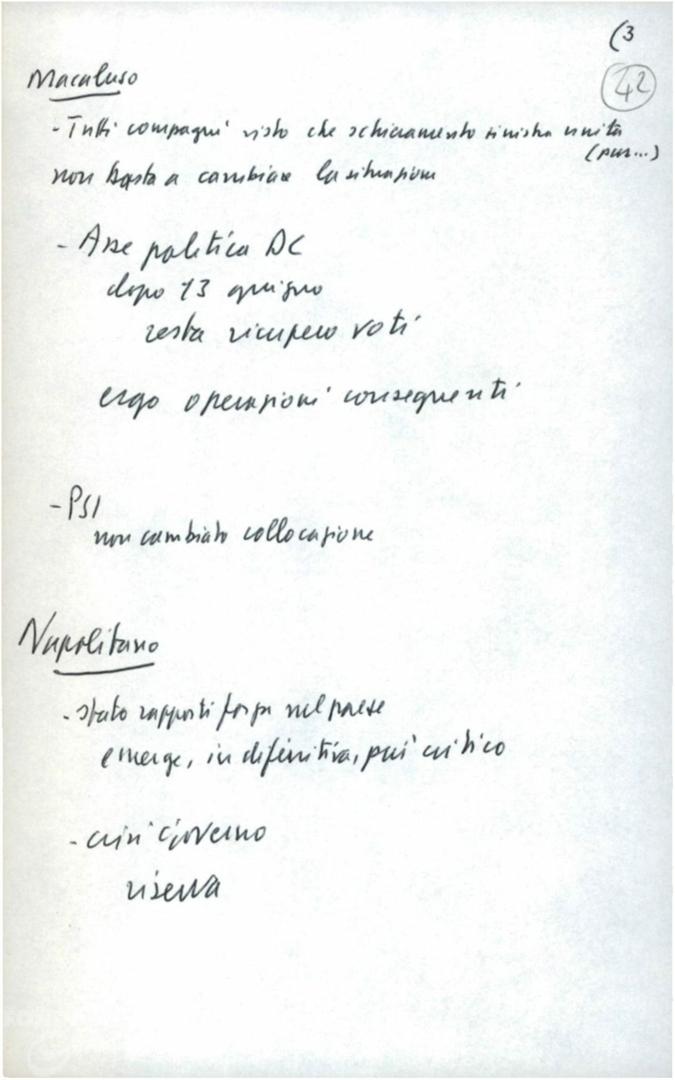 (3
42
Macaluso
- Tutti compagni visto che schieramento sinistra unita
(pur...)
non basta a cambiare la situazione
- Asse politica DC
dopo 13 giugno
resta ricupero voti
ergo operazioni conseguenti
- PSI
non cambiato collocazione
Napolitano
- stato rapporti forza nel paese
emerge, in definitiva, più critico
- crisi Governo
riserva